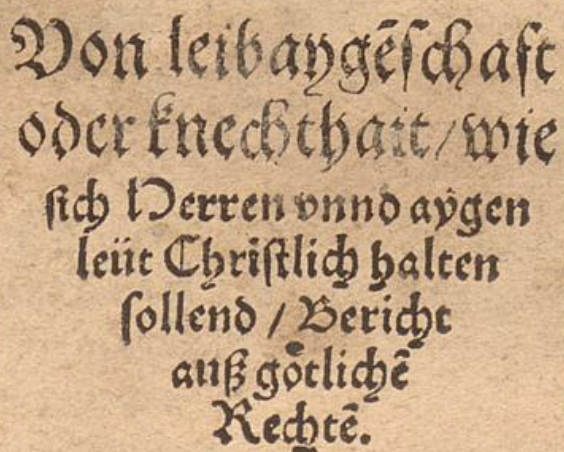 Von leibaygēschaft
oder knechthait / wie
sich Herren vnnd aygen
leüt Christlich halten
sollend / Bericht
auß götlichē
Rechtē.